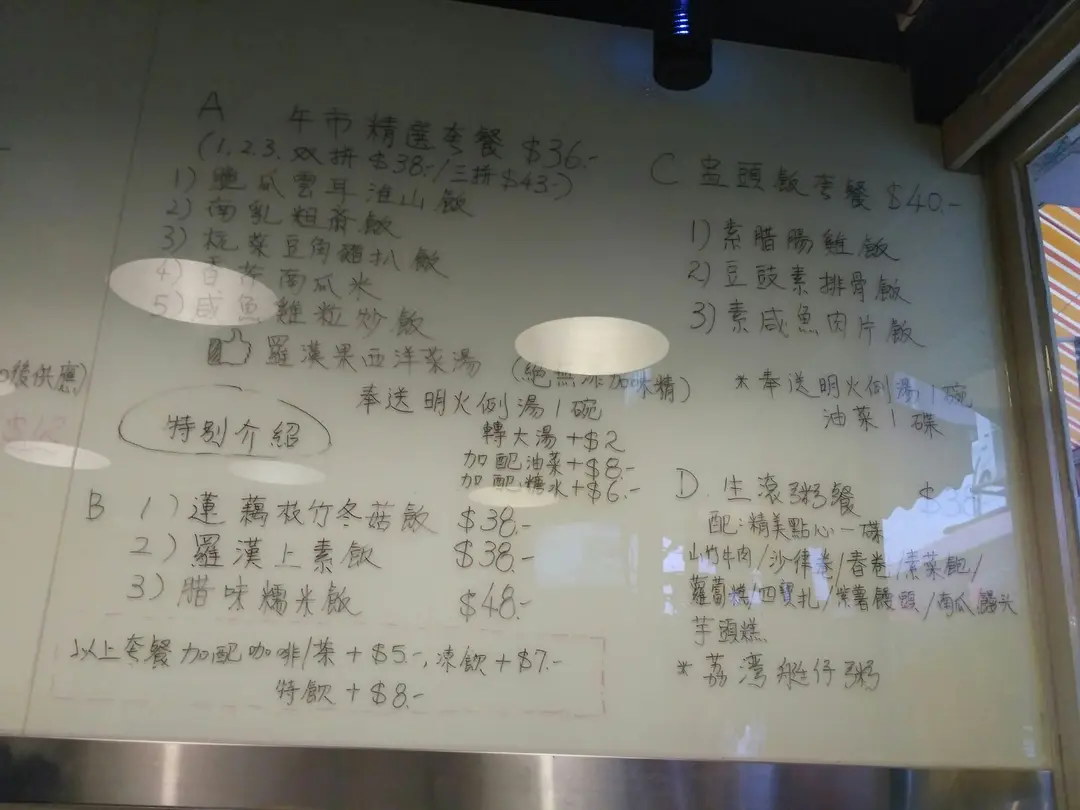 A 午市精選套餐 $36.-
(1.2.3.双拼$38.-/三拼$43.-)
1) 瓜雲耳淮山飯
2) 南乳粗斎飯
3) 菜豆角豬扒飯
4) 香 南瓜米
5) 咸魚雞粒炒飯
羅漢果西洋菜湯 (絕無添加味精)
奉送明火例湯1碗
轉大湯+$2
加配油菜+$8.-
加配糖水+$6.-
後供應)
特別介紹
B 1) 蓮藕枝竹冬菇飯 $38.-
2) 羅漢上素飯 $38.-
3) 腊味糯米飯 $48.-
以上套餐加配咖啡/茶+$5.-,凍飲+$7.-
特飲+$8.-
C 盅頭飯套餐 $40.-
1) 素腊腸雞飯
2) 豆豉素排骨飯
3) 素咸魚肉片飯
*奉送明火例湯1碗
油菜1碟
D. 生滾粥餐 $
配:精美點心一碟
山竹牛肉/沙律卷/春卷/素菜飽/
蘿蔔糕/四寶扎/紫薯饅頭/南瓜饅头
芋頭糕
*荔湾艇仔粥